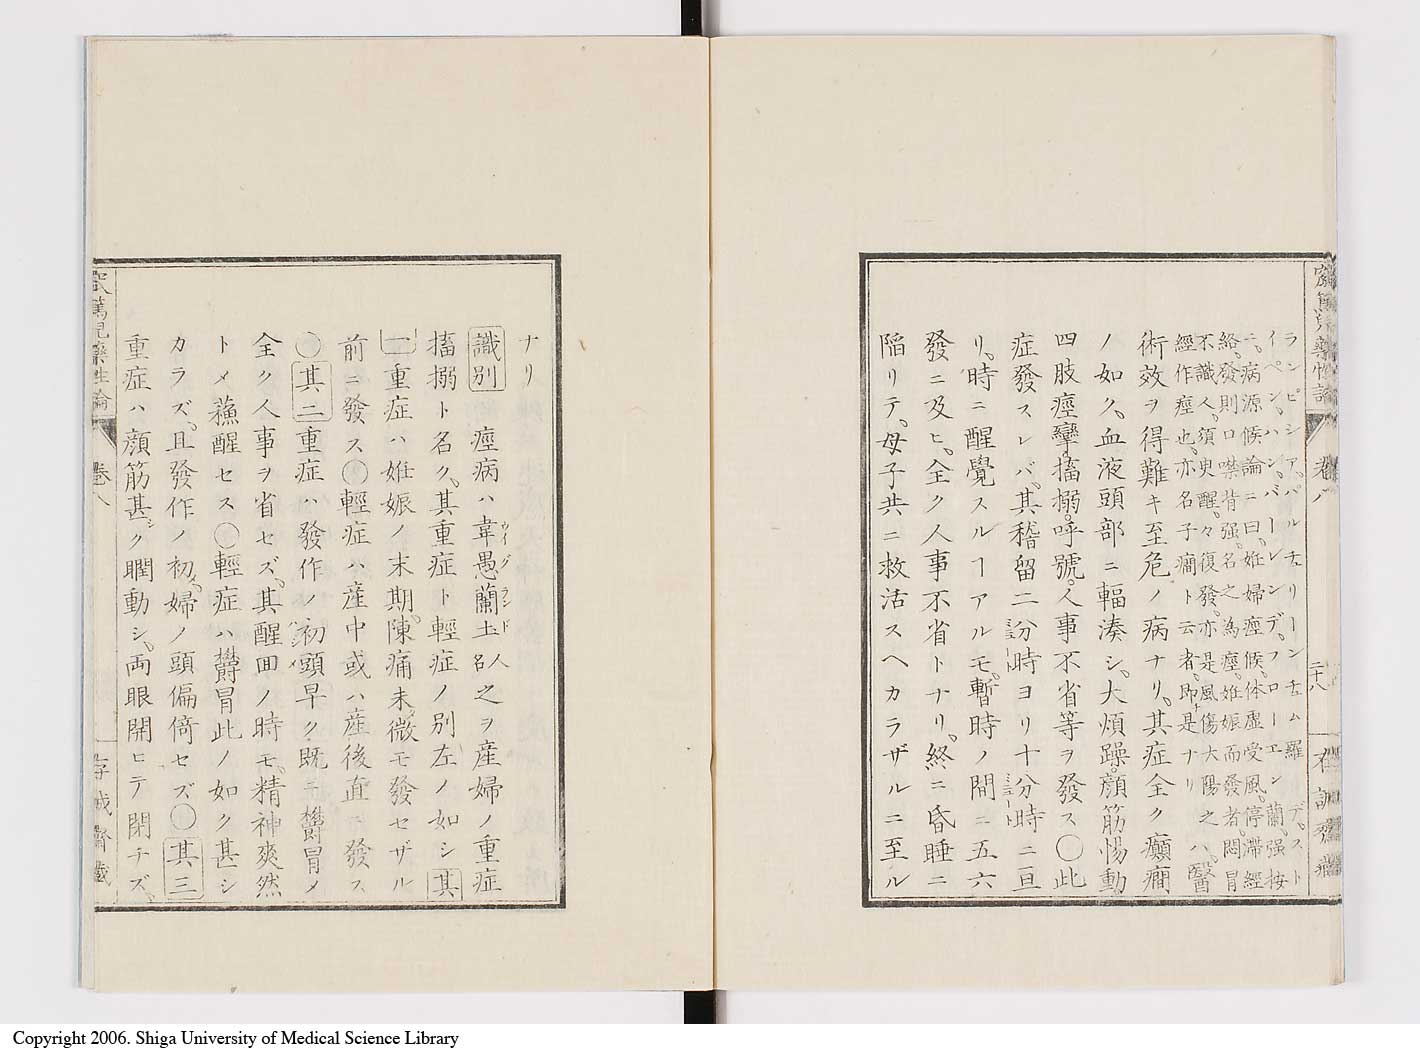 ランピシア、パルチユリーンチユム羅 デ、スト
イペン、ハン、バーレンンデ、フローエン蘭、强按
ニ、病源候論ニ曰、姙婦痙候、体虚受風、停滯經
絡、發則口噤背强、名之為痙、姙娠而發者、悶冒
不識人、須臾醒、々復發、亦是風傷大陽之
經作痙也、亦名子癎ト云者、即是ナリ ハ、醫
術效ヲ得難キ至危ノ病ナリ、其症全ク癲癎
ノ如ク、血液頭部ニ輻湊シ、大煩躁、顔筋惕動、
四肢痙攣、搐搦、呼號、人事不省等ヲ發ス〇此
症發スレバ、其稽留二分時ヨリ十分時ニ亘
リ、時ニ醒覺スルーアルモ、暫時ノ間ニ五六
發ニ及ヒ、全ク人事不省トナリ、終ニ昏睡ニ
陥リテ、母子共ニ救活スヘカラザルニ至ル
巻八
二十八
ナリ
識別 痙病ハ韋愚蘭土人名之ヲ産婦ノ重症
ウイグランド
搐搦ト名ク、其重症ト輕症ノ別左ノ如シ其
一重症ハ姙娠ノ末期、陳痛未微モ發セザル
前ニ發ス〇輕症ハ産中或ハ産後直ニ發ス
〇其二重症ハ發作ノ初頭早ク、既ニ欝冒メ
ハジメ
全ク人事ヲ省セズ、其醒囬ノ時モ、精神爽然
トメ蘓醒セス〇輕症ハ欝冒此ノ如ク甚シ
カラズ、且發作ノ初、婦ノ頭偏倚セズ〇其三
重症ハ顔筋甚シク瞤動シ、両眼開ヒテ閉チズ、
藥性論
巻八
存誠齋蔵
Copyright 2006. Shiga University of Medical Science Library